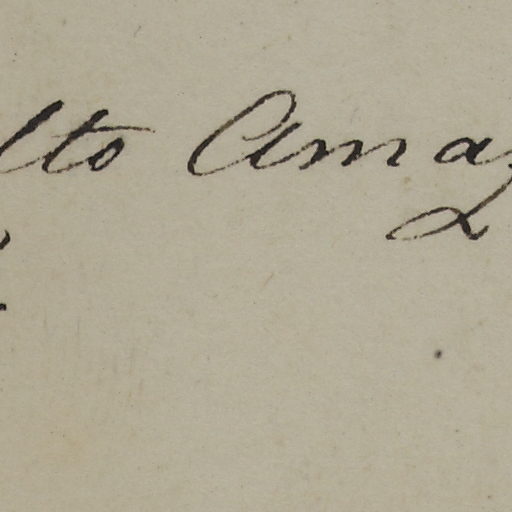 lto Amaz